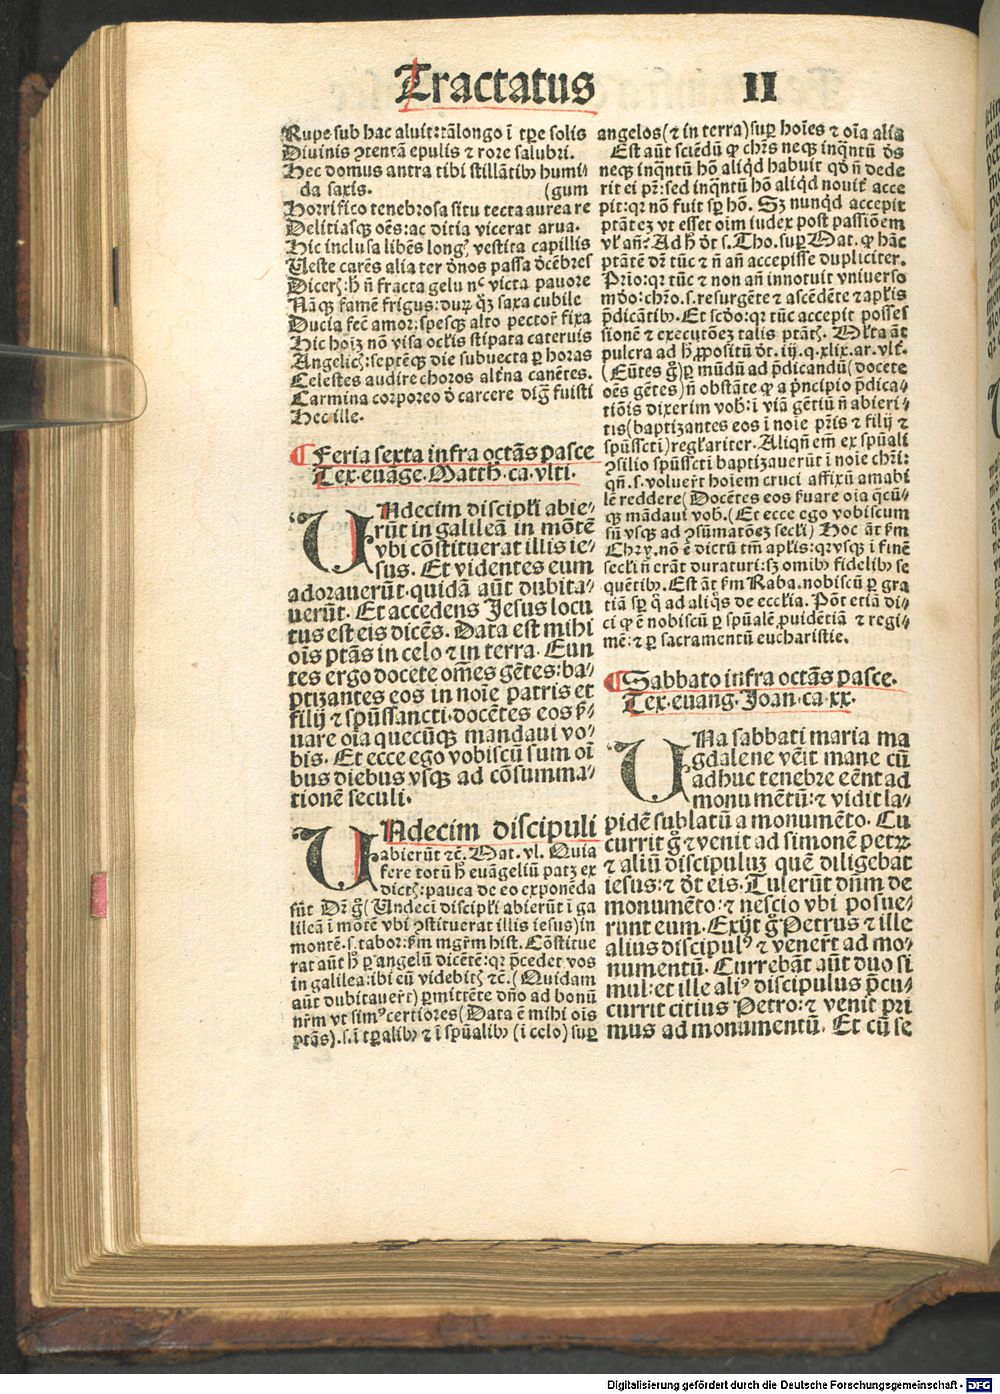 Tractatus II
Rupe sub hac aluit: tā longo ī tp̄e solis
Diuinis ꝯtentā epulis ⁊ rore salubri.
Hec domus antra tibi stillātibꝫ humi⸗
da saxis. (gum
Horrifico tenebrosa situ tecta aurea re
Delitiasqꝫ oēs: ac ditia vicerat arua.
Hic inclusa libēs longꝰ vestita capillis
Ueste carēs alia ter dnos passa dcēbres
Dicet᷑: h̄ n̄ fracta gelu nᶜ victa pauore
Nāqꝫ famē frigus: duꝝ qꝫ saxa cubile
Ducia fec̄ amor: spesqꝫ alto pector̄ fixa
Hic hoīꝫ nō visa ocl̄is stipata cateruis
Angelicꝭ: septēqꝫ die subuecta ꝑ horas
Celestes audire choros alt̄na canētes.
Carmina corporeo d̄ carcere dig fuisti
Hec ille.
¶ Feria sexta infra octās pasce
Tex. euāge. Matth. ca. vlti.
UNdecim discipl̄i abie⸗
rūt in galileā in mōte
vbi cōstituerat illis ie⸗
sus. Et videntes eum
adorauerūt. quidā aūt dubita⸗
uerūt. Et accedens Jesus locu
tus est eis dicēs. Data est mihi
oīs ptās in celo ⁊ in terra. Eun
tes ergo docete om̄es gētes: ba⸗
ptizantes eos in noīe patris et
filij ⁊ spūssancti. docētes eos ẜ⸗
uare oīa quecūqꝫ mandaui vo⸗
bis. Et ecce ego vobiscū sum oī
bus diebus vsqꝫ ad cōsumma⸗
tionē seculi.
UNdecim discipuli
abierūt ⁊c̄. Mat. vl. Quia
fere totū h̄ euāgeliū patꝫ ex
dictꝭ: pauca de eo exponēda
sūt Dr̄ g̊ (Undeci discipl̄i abierūt ī ga
lileā ī mōtē vbi ꝯstituerat illis iesus) in
montē. s. tabor: ẜm mgr̄m hist. Cōstitue
rat aūt h̄ ꝑ angelū dicētē: qr p̄cedet vos
in galilea: ibi eū videbitꝭ ⁊c̄. (Quidam
aūt dubitauer̄t) ꝑmittēte dn̄o ad bonū
nr̄m vt simꝰ certiores (Data ē mihi oīs
ptās). s. ī tꝑalibꝫ ⁊ ī spūalibꝫ (i celo) suꝑ
angelos (⁊ in terra) suꝑ hoīes ⁊ oīa alia
Est aūt sciēdū ꝙ chr̄s neqꝫ inqͣntū ds̄
neqꝫ inqͣntū hō aliqd habuit qd̄ n̄ dede
rit ei pr̄: sed inqͣntū hō aliqd nouit̄ acce
pit: qr nō fuit sp̄ hō. Sꝫ nunqd accepit
ptātēꝫ vt esset oīm iudex post passiōem
vl̄ an̄? Ad h̄ dt̄ s. Tho. suꝑ Mat. ꝙ hāc
ptātē dr̄ tūc ⁊ n̄ an̄ accepisse dupliciter.
Prīo: qr tūc ⁊ non an̄ innotuit vniuerso
mūdo: chr̄o. s. resurgēte ⁊ ascēdēte ⁊ apl̄is
p̄dicātibꝫ. Et scd̄o: qr tūc accepit posses
sionē ⁊ executōeꝫ talis ptātꝭ. Ml̄ta āt
pulcra ad h̄ ꝓpositū dt̄. iij. q. xlix. ar. vlt̄.
(Eūtes g̊) ꝑ mūdū ad p̄dicandū (docete
oēs gētes) n̄ obstāte ꝙ a p̄ncipio p̄dica⸗
tiōis dixerim vob̄: ī viā gētiū n̄ abieri⸗
tis (baptizantes eos ī noīe pr̄is ⁊ filij ⁊
spūsscti) regl̄ariter. Aliqn̄ em̄ ex spūali
ꝯsilio spūsscti baptizauerūt ī noīe chr̄i:
qn̄. s. voluer̄t hoīem cruci affixū amabi
lē reddere (Docētes eos ẜuare oīa qͣcū⸗
qꝫ mādaui vob. (Et ecce ego vobiscum
sū vsqꝫ ad ꝯsūmatōeꝫ secl̄i) Hoc āt ẜm
Chrẏ. nō ē dictū tm̄ apl̄is: qr vsqꝫ ī finē
secl̄i n̄ erāt duraturi: sꝫ omibꝫ fidelibꝫ se
quētibꝫ. Est āt ẜm Raba. nobiscū ꝑ gra
tiā sꝑ q̄ ad aliqͦs de eccl̄ia. Pōt etiā di⸗
ci ꝙ ē nobiscū ꝑ spūalē ꝓuidētiā ⁊ regi⸗
mē: ⁊ ꝑ sacramentū eucharistie.
¶ Sabbato infra octās pasce.
Tex. euang. Joan. ca. xx.
UNa sabbati maria ma
gdalene vēit mane cū
adhuc tenebre eēnt ad
monumētū: ⁊ vidit la⸗
pidē sublatū a monumēto. Cu
currit g̊ ⁊ venit ad simonē petꝝ
⁊ aliū discipuluꝫ quē diligebat
iesus: ⁊ dt̄ eis. Tulerūt dn̄m de
monumēto: ⁊ nescio vbi posue⸗
runt eum. Exijt g̊ Petrus ⁊ ille
alius discipulꝰ ⁊ vener̄t ad mo⸗
numentū. Currebāt aūt duo si
mul: et ille aliꝰ discipulus p̄cu⸗
currit citius Petro: ⁊ venit pri
mus ad monumentū. Et cū se
Digitalisierung gefördert durch die Deutsche Forschungsgemeinschaft - DFG